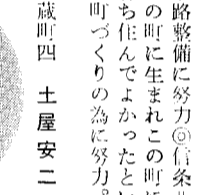 路整備に努力◎信条
の町に生まれこの町に
ち住んでよかったと
町づくりの為に努力。
蔵町四　土屋安二